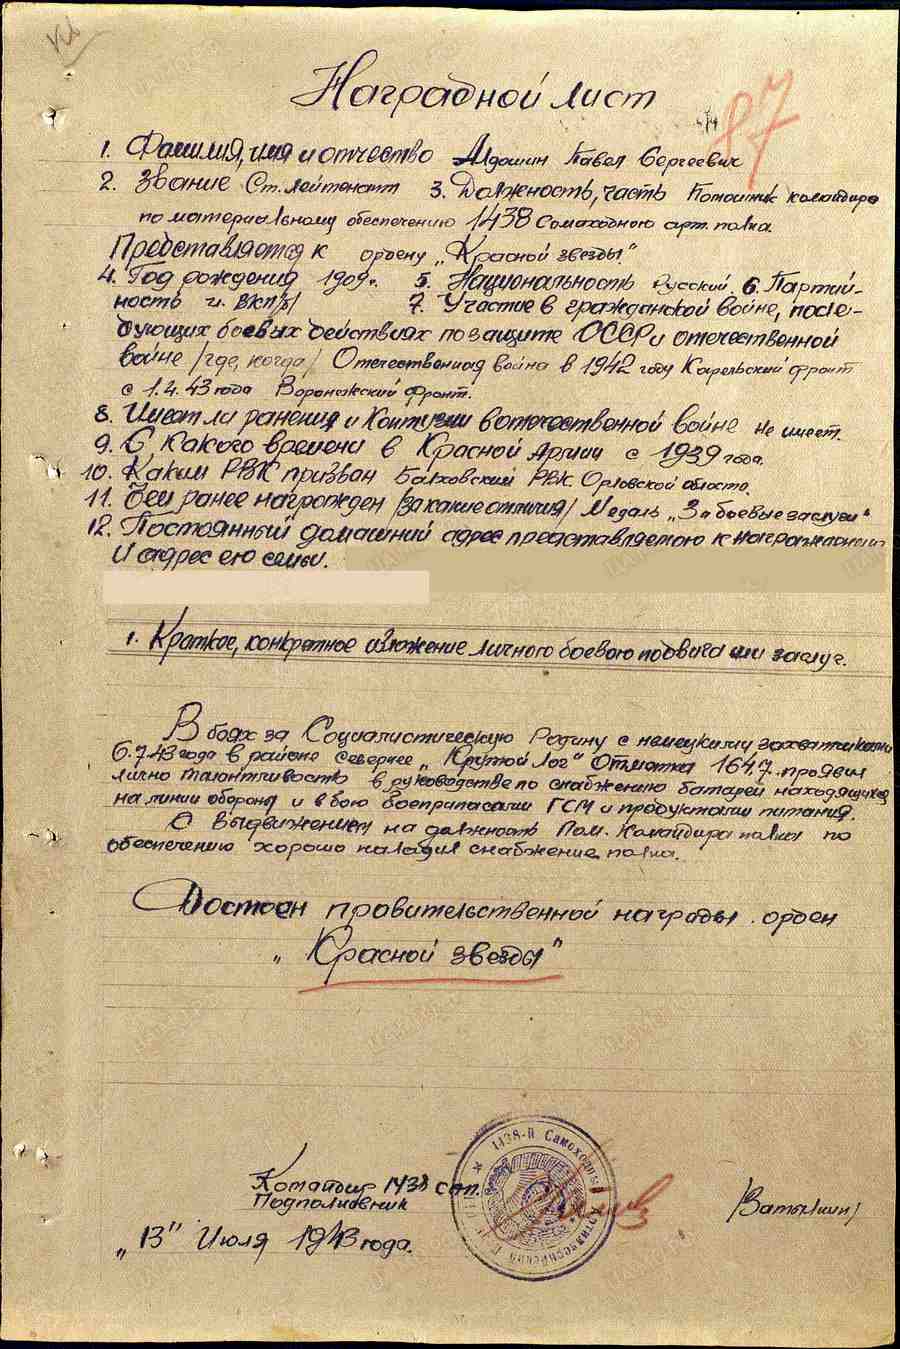 87
Наградной лист
1. Фамилия, имя и отчество Алдошин Павел Сергеевич
2. Звание Ст. лейтенант 3. Должность, часть Помощник командира
по материальному обеспечению 1438 Самоходного арт. полка
Представляется к ордену „Красной звезды"
4. Год рождения 1909г. 5. Национальность русский. 6. Партий-
ность ч. ВКП/б/ 7. Участие в гражданской войне, после-
дующих боевых действиях по защите СССР и отечественной
войне /где, когда/ Отечественная война в 1942 году Карельский фронт
с 1.4.43 года Воронежский Фронт.
8. Имеет ли ранения и Контузии в отечественной войне не имеет.
9. С какого времени в Красной Армии с 1939 года.
10. Каким РВК призван Болховский РВК Орловской области.
11. Чем ранее награжден /за какие отличия/ Медаль „За боевые заслуги"
12. Постоянный домашний адрес представляемого к награждению
и адрес его семьи.
1. Краткое, конкретное изложение личного боевого подвига или заслуг.
В боях за Социалистическую Родину с немецкими захватчиками
6.7.43 года в районе севернее „Крутой Лог" Отметка 164,7 проявил
лично талантливость в руководстве по снабжению батарей находящихся
на линии обороны и в бою боеприпасами ГСМ и продуктами питания.
С выдвижением на должность Пом. Командира полка по
обеспечению хорошо наладил снабжение полка.
Достоен правительственной награды орден
„Красной звезды"
Командир 1438 сап.
Подполковник /Ватылкин/
„13" Июля 1943 года.
1438-й Самоходный Артиллерийский